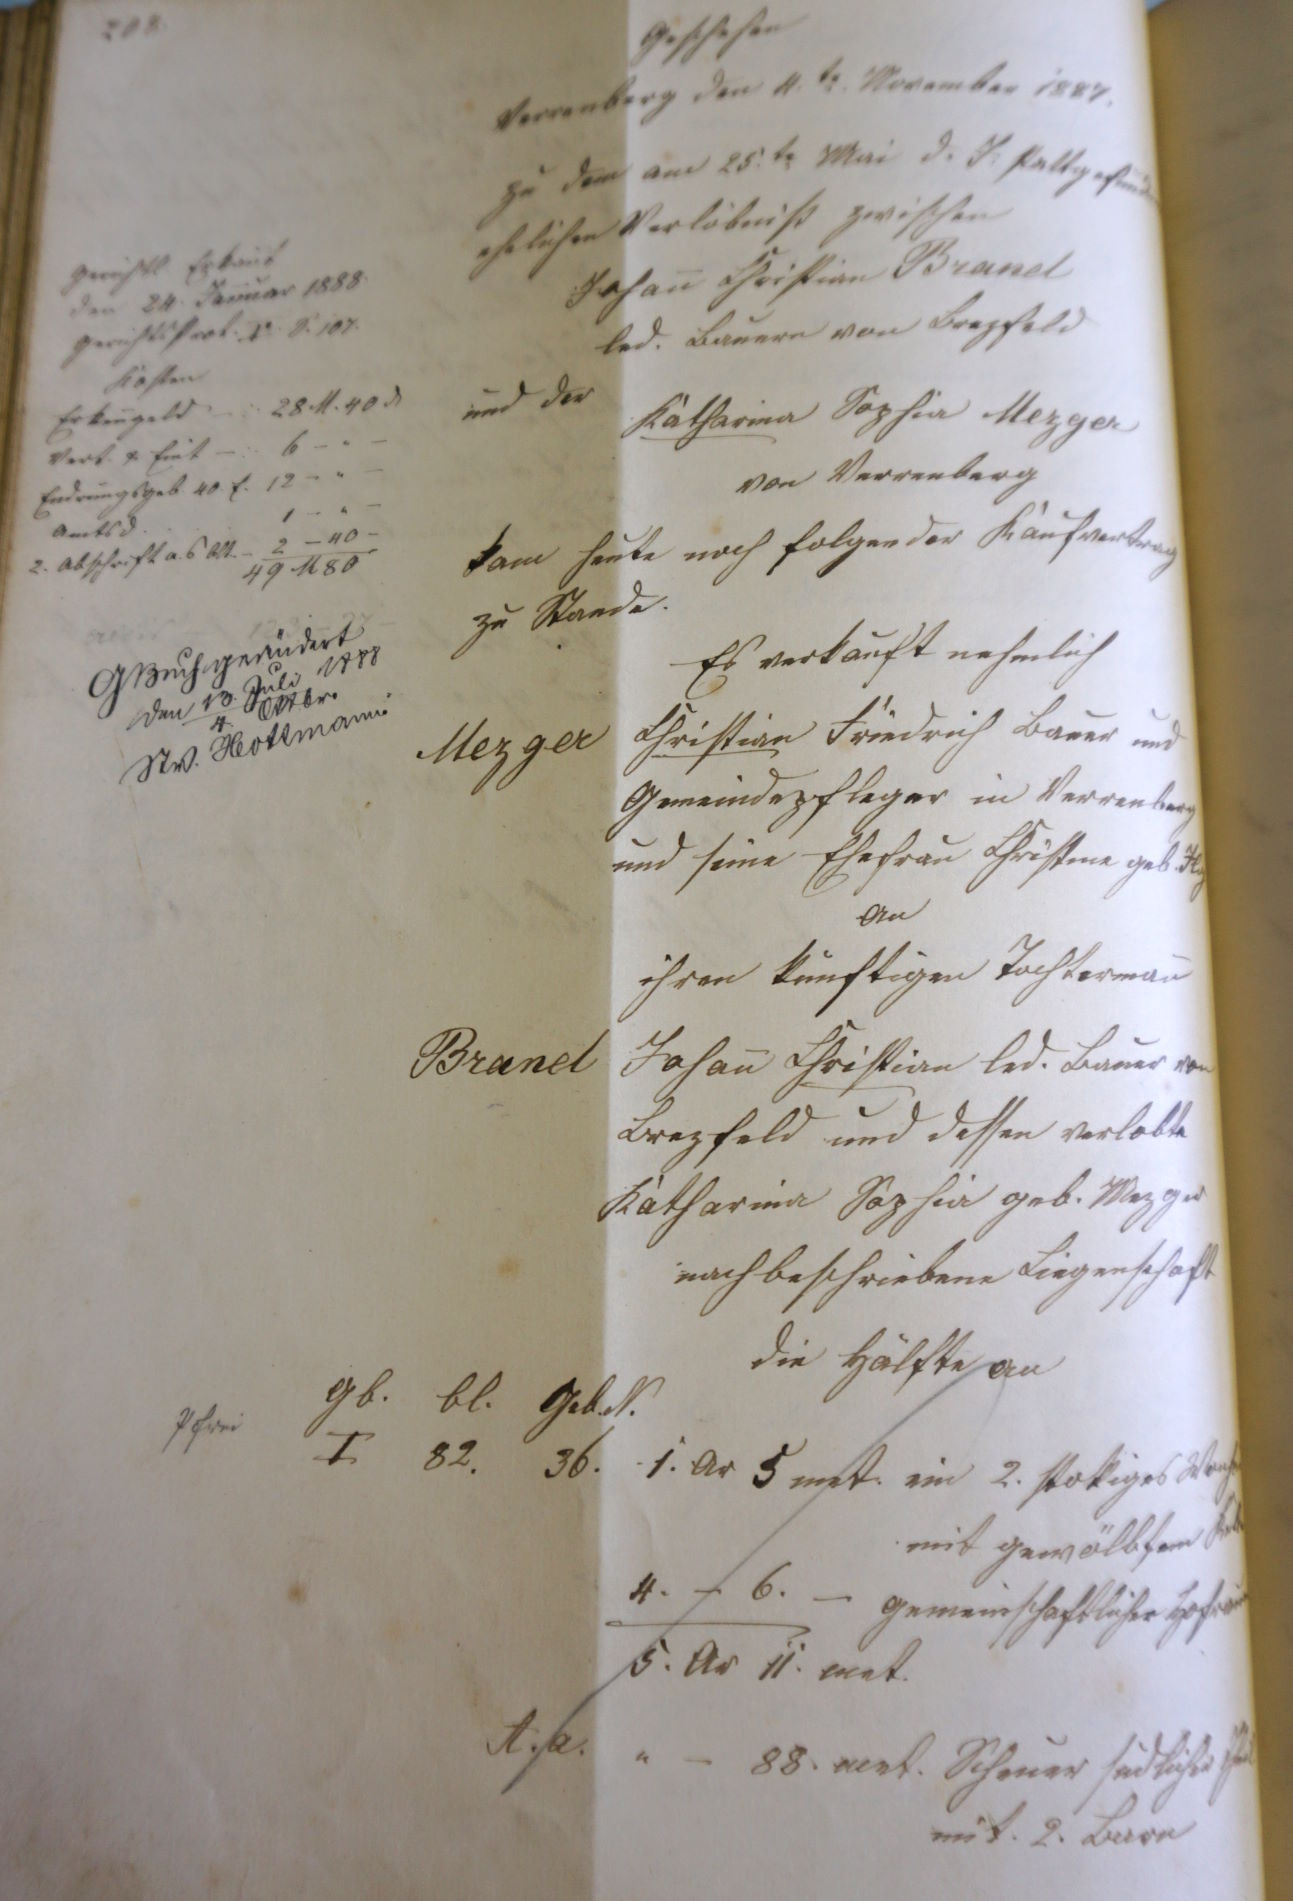 208.
Geschehen
Verrenberg den 4. tn. November 1887.
zu dem am 25. tn Mai d. J. stattgefunden
ehelichen Verlöbniß zwischen
Johann Christian Brand
led. Bauern von Brezfeld
und der
Katharina Sophia Mezger
von Verrenberg
kam heute noch folgender Kaufvertrag
zu Stande.
Es verkauft nehmlich
Mezger Christian Friedrich Bauer und
Gemeindepfleger in Verrenberg
und seine Ehefrau Christine geb.
an
ihren künftigen Tochtermann
Brand Johann Christian led. Bauer von
Brezfeld und dessen verlobte
Katharina Sophia geb. Mezger
nachbeschriebene Liegenschaft
die Hälfte an
gb. bl. Geb. N.
I 82. 36. 1. Ar 5 met. ein 2. stokiges
mit gewölbtem
4. – 6. – gemeinschaftlicher Hofraum
5. Ar 11. met.
A. a. " – 88. met. Scheuer südlicher
mit. 2. Barn
Gerichtl. Erkannt
den 24. Januar 1888.
Gerichtsprot. S. 107.
Kosten
Erkenngeld – 28 M. 40 d
Vert. & Eint – 6 – " –
40 f. 12 – " –
Amtsd. 1 – " –
2. Abschrift a. 6 Bl. – 2 – 40 –
49 M 80
GBuch geändert
den 13. Juli 1888
4. Oktbr.